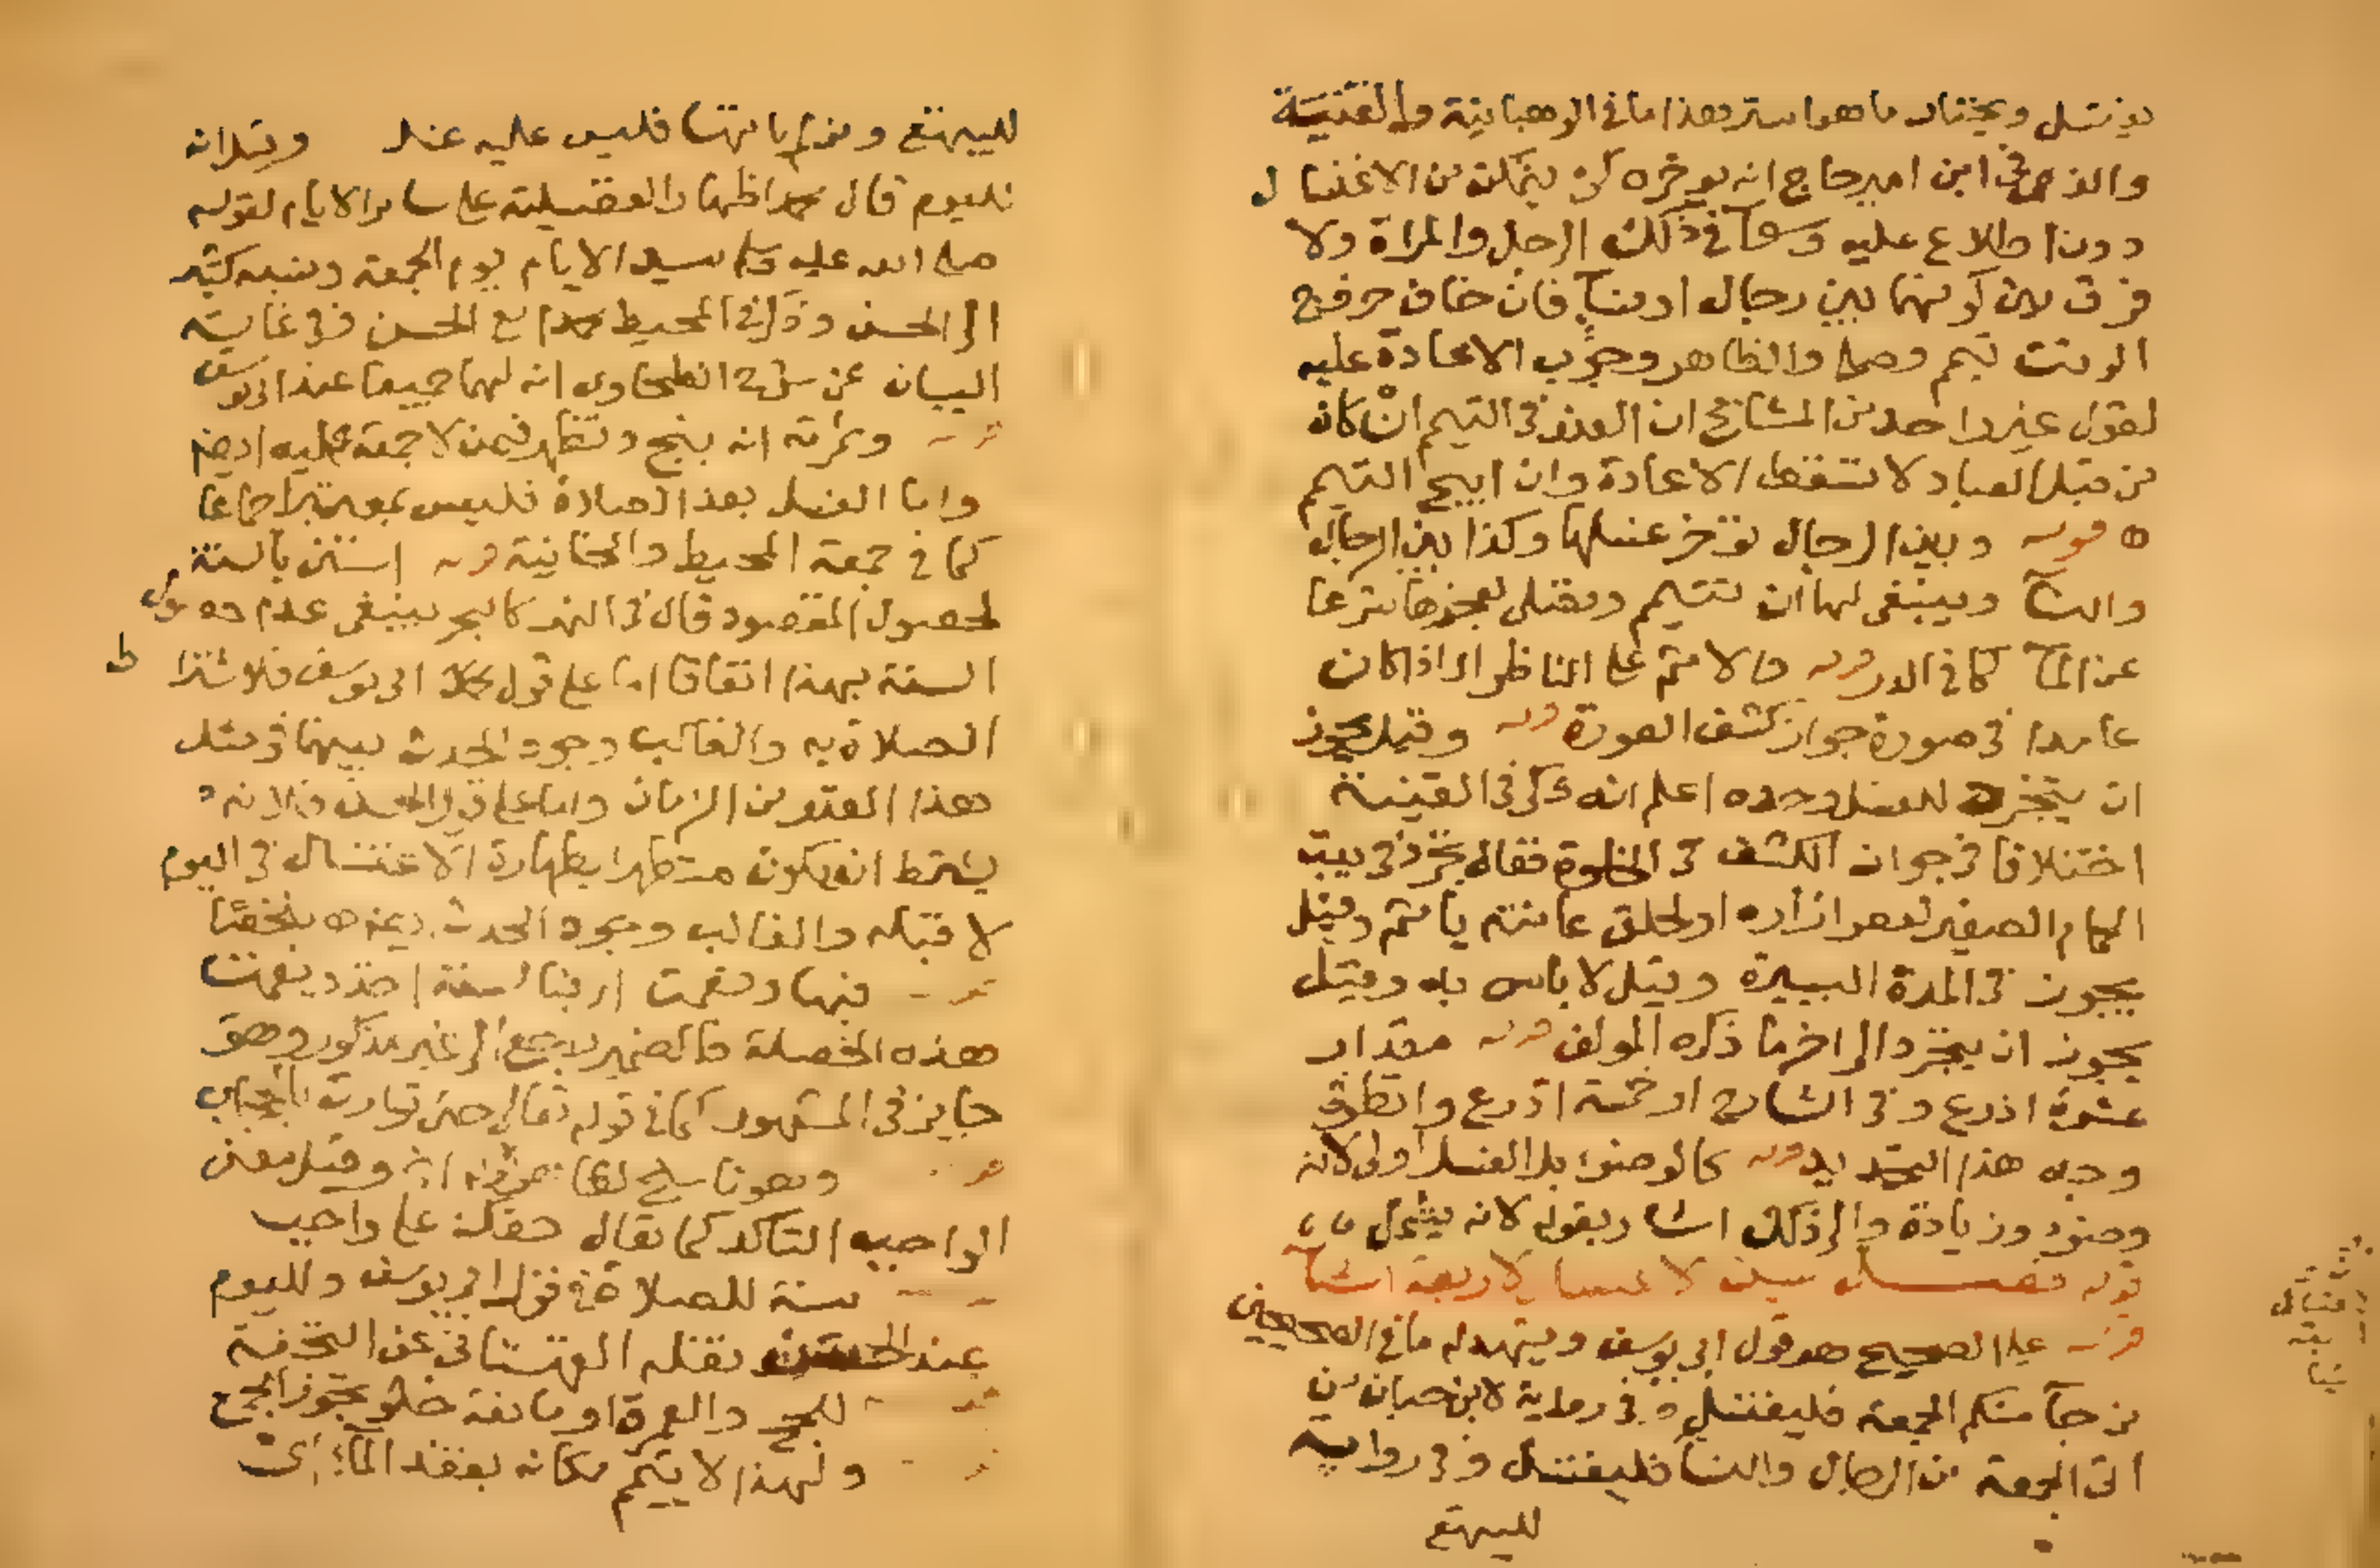 يغتسل ويختار ما هو استر هذا ما في الوهبانية والقنية
والذي في ابن امير حاج انه يوخره كي يتمكن من الاغتسال
دون اطلاع عليه وسوآ في ذلك الرجل والمراة ولا
فرق بين كونهما بين رجال او نسآ فان خاف خروج
الوقت تيمم وصلى والظاهر وجوب الاعادة عليه
لقول غير واحد من المشايخ ان العذر في التيمم ان كان
من قبل العباد لا تسقط الاعادة وان ابيح التيمم
ه قوله وبين الرجال تؤخر غسلها وكذا بين الرجال
والنسآ وينبغي لها ان تتيمم وتصلى لعجزها شرعا
عن المآ كما في الدر قوله فالاثم على الناظر اى اذا كان
عامدا في صورة جواز كشف العورة قوله وقيل يجوز
ان يتجرد للغسل وحده اعلم انه ذكر في القنية
اختلافا في جواز الكشف في الخلوة فقال تجرد في بيت
الحمام الصغير لعصر ازاره او لحلق عانته ياثم وقيل
يجوز في المدة اليسيرة وقيل لا باس به وقيل
يجوز ان يتجرد الى اخر ما ذكره المولف قوله مقدار
عشرة اذرع وفي الشارح او خمسة اذرع وانظر
وجه هذا التحديد قوله كالوضوء بل الغسل اولى لانه
وضوء وزيادة والى ذلك اشار بقوله لانه يشمل
قوله فصل يسن الاغتسال لاربعة اشيآ
قوله على الصحيح هو قول ابي يوسف ويشهد له ما في الصحيحين
من جآ منكم الجمعة فليغتسل وفي رواية لابن حبان من
اتى الجمعة من الرجال والنسآ فليغتسل وفي رواية
للبيهقي
للبيهقي ومن لم ياتها فليس عليه غسل وقيل انه
لليوم قال محمد اظهارا لفضيلته على ساير الايام لقوله
صلى الله عليه وسلم سيد الايام يوم الجمعة ونسبه كثير
الى الحسن وذكر في المحيط محمدا مع الحسن وفي غاية
البيان عن شرح الطحاوى انه لهما جميعا عند ابي يوسف
قوله وثمرته انه ينبج وتظهر فيمن لا جمعة عليه
واما الغسل بعد الصلاة فليس بمعتبر اجماعا
كما في جمعة المحيط والخانية قوله استن بالسنة
لحصول المقصود قال في النهر كالبحر ينبغي عدم حصول
السنة بهذا اتفاقا اما على قول ابي يوسف فلاشتراط
الصلاة به والغالب وجود الحدث بينهما في مثل
هذا القدر من الزمان واما على قول الحسن فلانه
يشترط ان يكون متطهرا بطهارة الاغتسال في اليوم
لا قبله والغالب وجود الحدث
قوله فبها ونعمت اى فبالسنة اخذ ونعمت
هذه الخصلة فالضمير لا يرجع الى غير مذكور وهو
جايز في المشهور كما في قوله تعالى حتى توارت بالحجاب
قوله وهو ناسخ وقيل معنى
الواجب التاكد كما يقال حقك على واجب
سنة للصلاة في قول ابي يوسف ولليوم
عند الحسن نقله القهستاني عن التحفة
للحج والعمرة او مانعة خلو يجوز الجمع
ولهذا لا يتيمم مكانه بفقد المآ اى